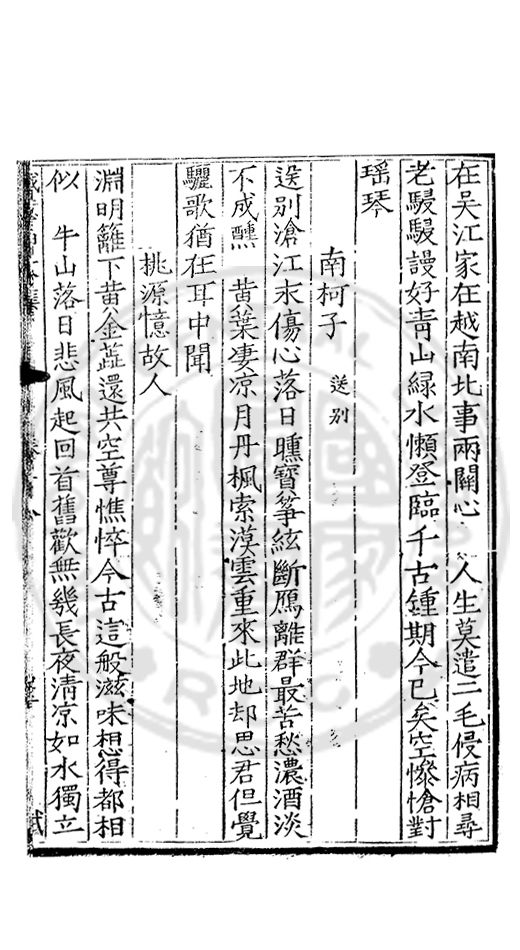 在吴江家在越南北事兩關心　人生莫遣二毛侵病相尋
老駸駸謾好青山綠水懶登臨千古鍾期今已矣空慘愴對
瑶琴
南柯子　送别
送别滄江末傷心落日曛寳筝絃斷鴈離群最苦愁濃酒淡
不成醺　黄葉凄凉月丹楓索漠雲重來此地却思君但覺
驪歌猶在耳中聞
桃源憶故人
淵明籬下黄金蘂還共空尊憔悴今古這般滋味想得都相
似　牛山落日悲風起回首舊歡無幾長夜清凉如水獨立